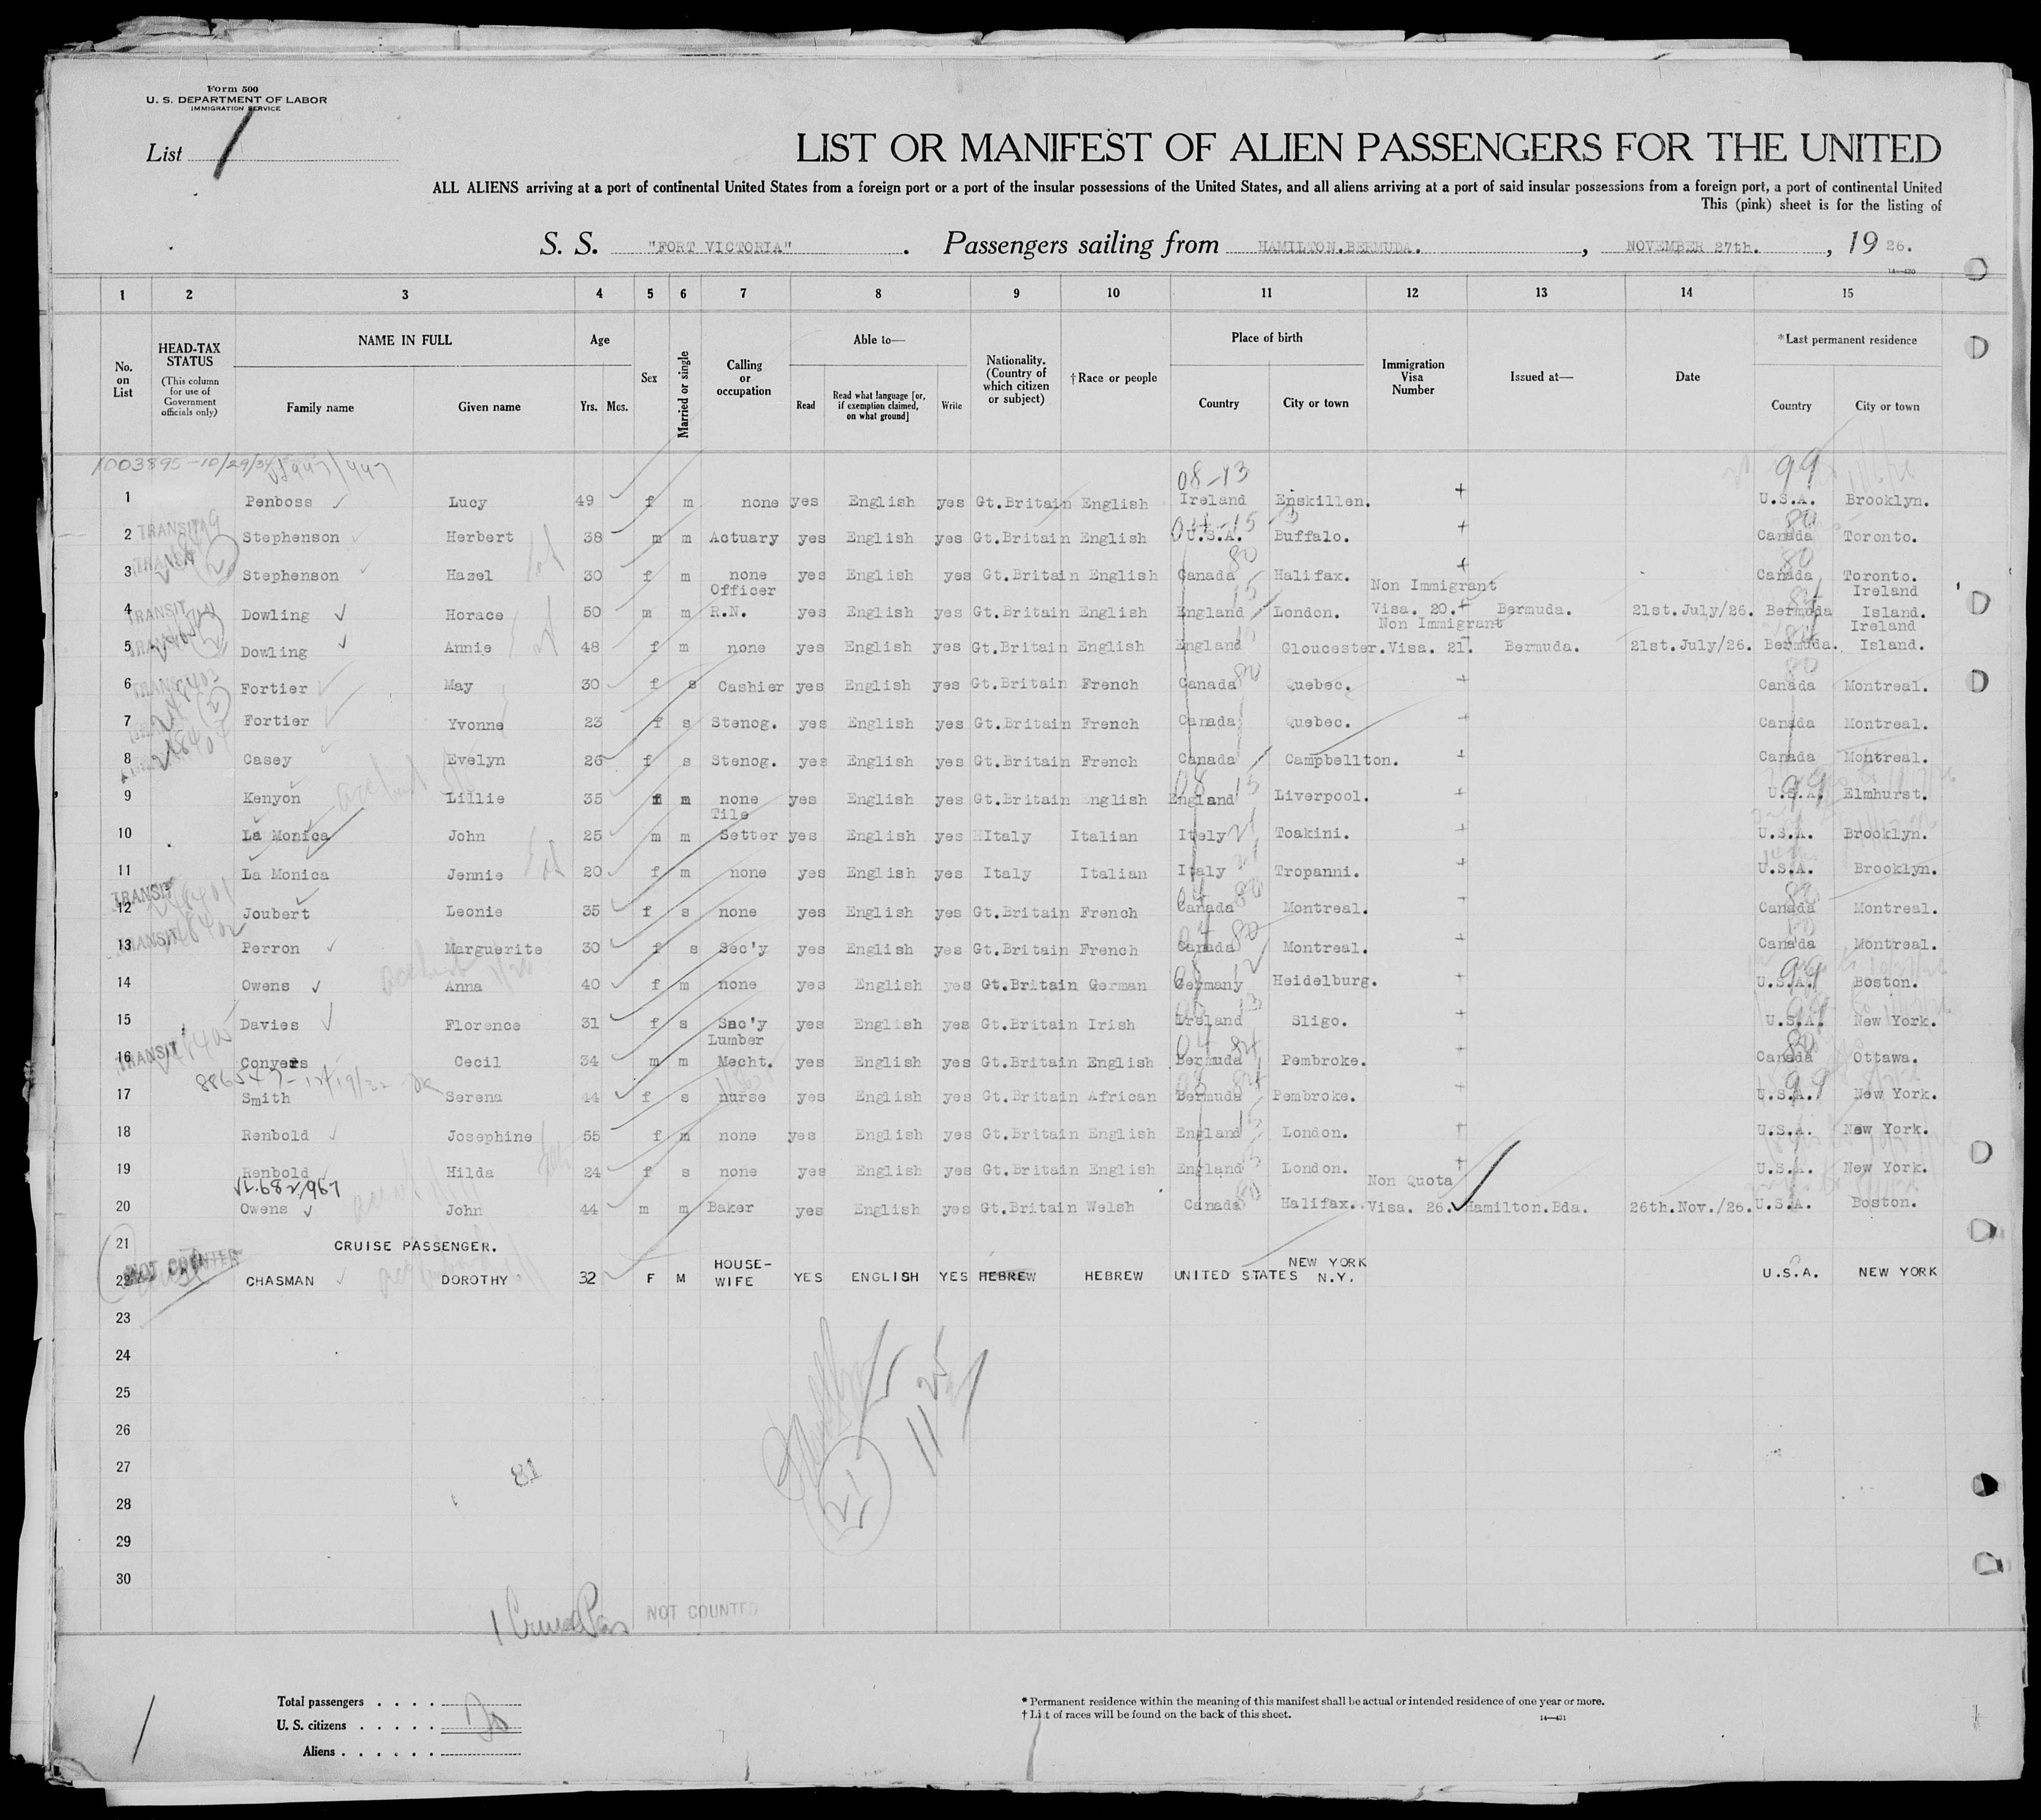 Form 500
U. S. DEPARTMENT OF LABOR
IMMIGRATION SERVICE
List 1
LIST OR MANIFEST OF ALIEN PASSENGERS FOR THE UNITED
ALL ALIENS arriving at a port of continental United States from a foreign port or a port of the insular possessions of the United States, and all aliens arriving at a port of said insular possessions from a foreign port, a port of continental United
This (pink) sheet is for the listing of
S. S. "FORT VICTORIA". Passengers sailing from HAMILTON.BERMUDA. , NOVEMBER 27th. , 19 26.
14—430
1 2 3 4 5 6 7 8 9 10 11 12 13 14 15
No. on List
HEAD-TAX STATUS (This column for use of Government officials only)
NAME IN FULL
Family name Given name
Age
Yrs. Mos.
Sex
Married or single
Calling or occupation
Able to—
Read Read what language [or, if exemption claimed, on what ground] Write
Nationality. (Country of which citizen or subject)
†Race or people
Place of birth
Country City or town
Immigration Visa Number
Issued at—
Date
*Last permanent residence
Country City or town
1003895-10/29/34
08-13 99
1 Penboss Lucy 49 f m none yes English yes Gt.Britain English Ireland Enskillen. + U.S.A. Brooklyn.
TRANSIT
2 Stephenson Herbert 38 m m Actuary yes English yes Gt.Britain English U.S.A. Buffalo. + Canada Toronto.
TRANSIT
3 Stephenson Hazel 30 f m none yes English yes Gt.Britain English Canada Halifax. + Canada Toronto.
TRANSIT
4 Dowling Horace 50 m m Officer R.N. yes English yes Gt.Britain English England London. Non Immigrant Visa. 20. Bermuda. 21st.July/26. Bermuda Ireland Island.
TRANSIT
5 Dowling Annie 48 f m none yes English yes Gt.Britain English England Gloucester. Non Immigrant Visa. 21. Bermuda. 21st.July/26. Bermuda. Ireland Island.
TRANSIT
6 Fortier May 30 f s Cashier yes English yes Gt.Britain French Canada Quebec. + Canada Montreal.
7 Fortier Yvonne 23 f s Stenog. yes English yes Gt.Britain French Canada Quebec. + Canada Montreal.
8 Casey Evelyn 26 f s Stenog. yes English yes Gt.Britain French Canada Campbellton. + Canada Montreal.
9 Kenyon Lillie 35 f m none yes English yes Gt.Britain English England Liverpool. + U.S.A. Elmhurst.
10 La Monica John 25 m m Tile Setter yes English yes Italy Italian Itely Toakini. + U.S.A. Brooklyn.
11 La Monica Jennie 20 f m none yes English yes Italy Italian Italy Tropanni. + U.S.A. Brooklyn.
TRANSIT
12 Joubert Leonie 35 f s none yes English yes Gt.Britain French Canada Montreal. + Canada Montreal.
TRANSIT
13 Perron Marguerite 30 f s Sec'y yes English yes Gt.Britain French Canada Montreal. + Canada Montreal.
14 Owens Anna 40 f m none yes English yes Gt.Britain German Germany Heidelburg. + U.S.A. Boston.
15 Davies Florence 31 f s Sec'y yes English yes Gt.Britain Irish Ireland Sligo. + U.S.A. New York.
TRANSIT
16 Conyers Cecil 34 m m Lumber Mecht. yes English yes Gt.Britain English Bermuda Pembroke. + Canada Ottawa.
17 Smith Serena 44 f s nurse yes English yes Gt.Britain African Bermuda Pembroke. + U.S.A. New York.
18 Renbold Josephine 55 f m none yes English yes Gt.Britain English England London. + U.S.A. New York.
19 Renbold Hilda 24 f s none yes English yes Gt.Britain English England London. + U.S.A. New York.
20 Owens John 44 m m Baker yes English yes Gt.Britain Welsh Canada Halifax. Non Quota Visa. 26. Hamilton.Bda. 26th.Nov./26. U.S.A. Boston.
21 CRUISE PASSENGER.
NOT COUNTED
22 CHASMAN DOROTHY 32 F M HOUSE-WIFE YES ENGLISH YES HEBREW HEBREW UNITED STATES NEW YORK N.Y. U.S.A. NEW YORK
23
24
25
26
27
28
29
30
81
21
1 Cruise Pas NOT COUNTED
Total passengers . . . .
U. S. citizens . . . . .
Aliens . . . . . .
* Permanent residence within the meaning of this manifest shall be actual or intended residence of one year or more.
† List of races will be found on the back of this sheet.
14—431